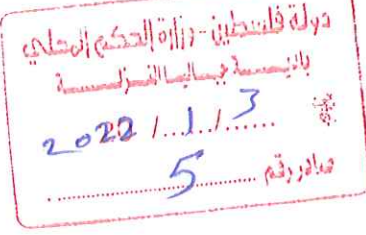 دولة فلسطين - وزارة الحكم المحلي
بلديـــة جبـاليـا النـزلــــة
2022 /...1.../...3...
صادر رقم ........5........